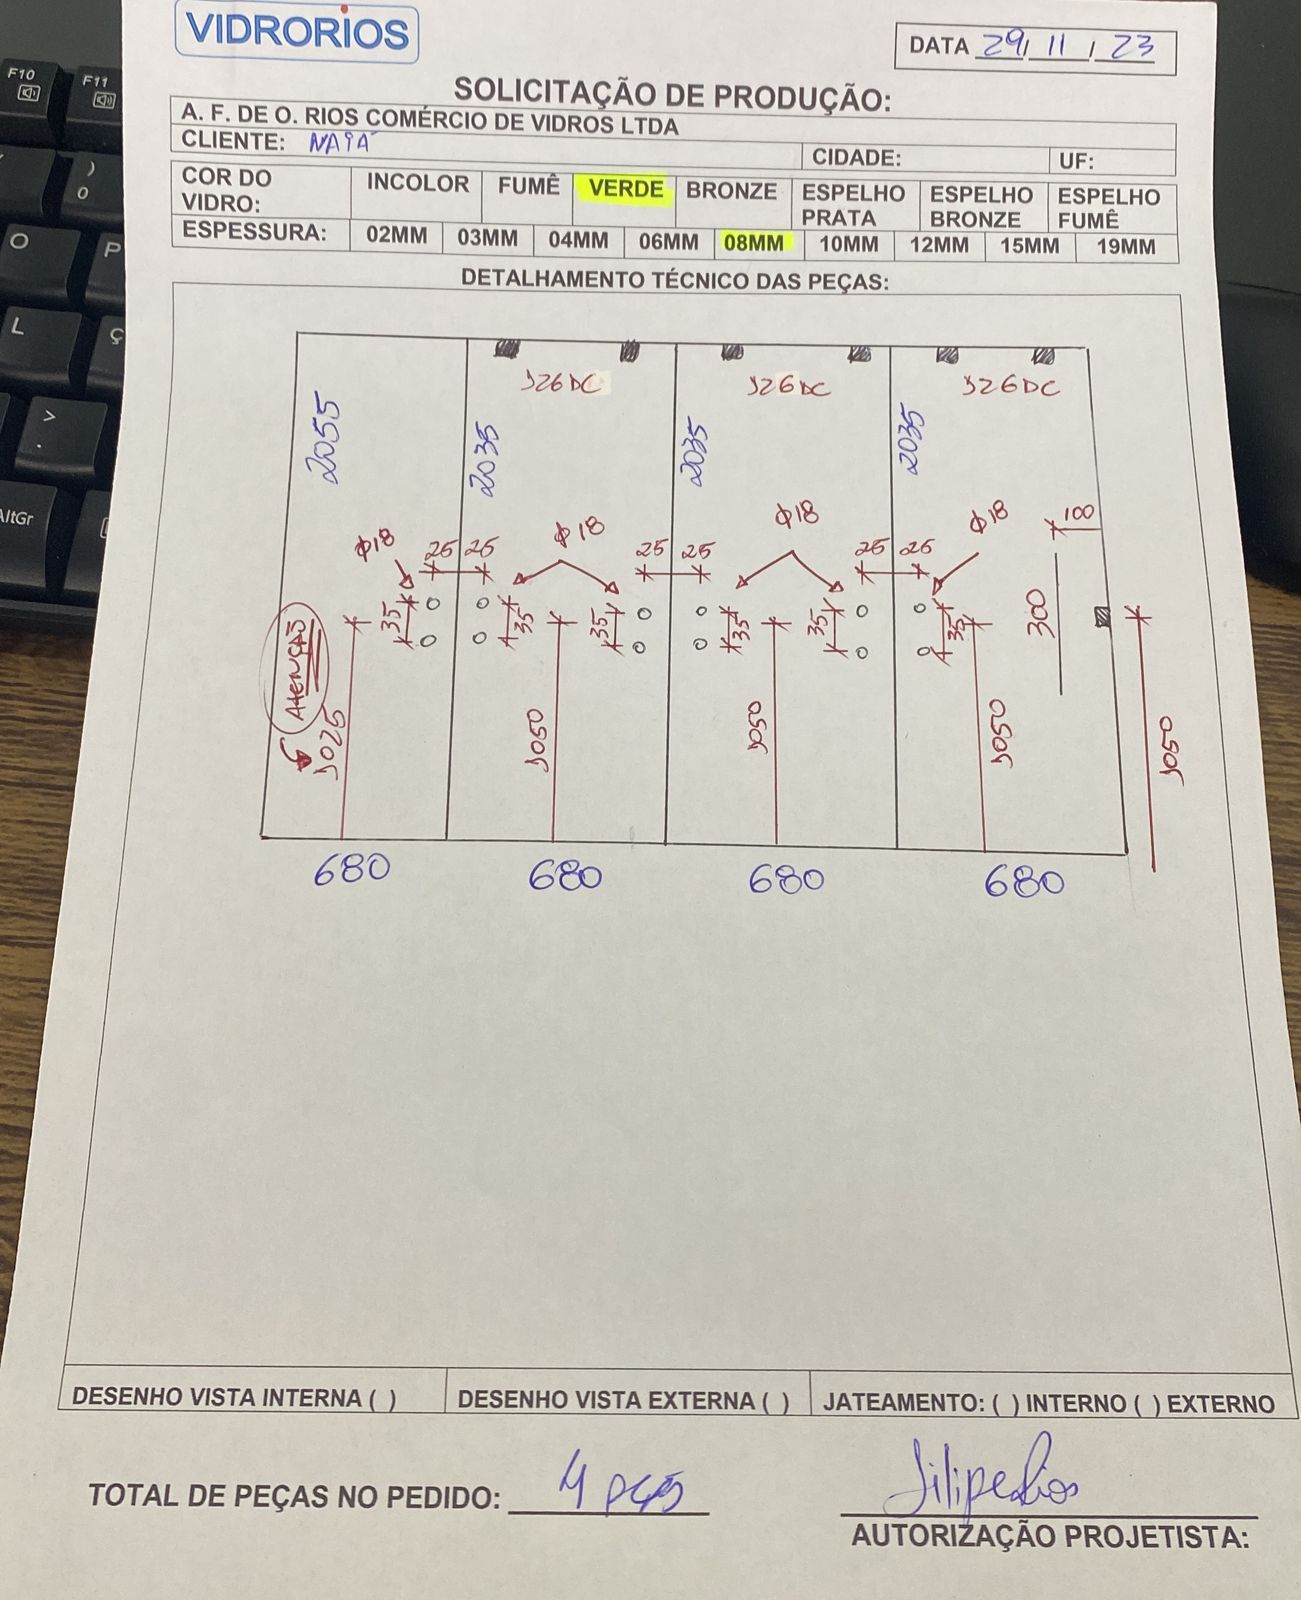 VIDRORIOS
DATA 29/11/23
SOLICITAÇÃO DE PRODUÇÃO:
A. F. DE O. RIOS COMÉRCIO DE VIDROS LTDA
CLIENTE: NAIA CIDADE: UF:
COR DO VIDRO: INCOLOR FUMÊ VERDE BRONZE ESPELHO PRATA ESPELHO BRONZE ESPELHO FUMÊ
ESPESSURA: 02MM 03MM 04MM 06MM 08MM 10MM 12MM 15MM 19MM
DETALHAMENTO TÉCNICO DAS PEÇAS:
126DC 126DC 126DC
2055 2035 2035 2035
φ18 φ18 φ18 φ18 100
25 25 25 25 25 25
35 35 35 35 35 35 300
ATENÇÃO
1025 1050 1050 1050 1050
680 680 680 680
DESENHO VISTA INTERNA ( ) DESENHO VISTA EXTERNA ( ) JATEAMENTO: ( ) INTERNO ( ) EXTERNO
TOTAL DE PEÇAS NO PEDIDO: 4 pçs FilipeRios
AUTORIZAÇÃO PROJETISTA:
F10 F11
)
0
O P
L Ç
>
.
AltGr